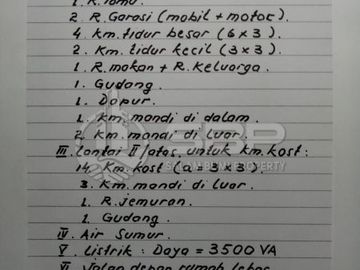 1. R. Tamu.
2. R. Garasi (mobil + motor).
4. Km. tidur besar (6 x 3).
2. Km. tidur kecil (3 x 3).
1. R. makan + R. Keluarga.
1. Gudang.
1. Dapur.
1. Km. mandi di dalam.
2. Km. mandi di luar.
III. Lantai II/atas, untuk Km. kost:
14. Km. kost (a = 3 x 3).
3. Km. mandi di luar.
1. R. Jemuran.
1. Gudang.
IV. Air Sumur.
V. Listrik: Daya = 3500 VA
VI. Jalan depan rumah lebar